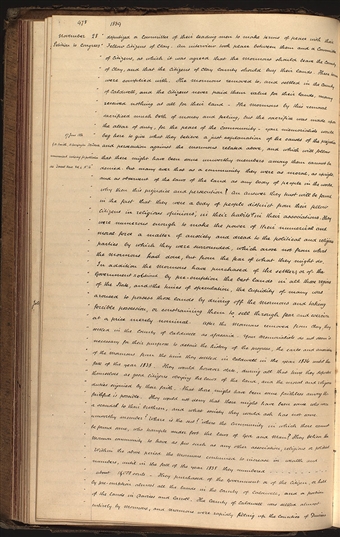 458 1839
November 28 deputized a Committee of their leading men to make terms of peace with their
Petition to Congress Fellow Citizens of Clay. An interview took place between them and a Committee
of Citizens, at which it was agreed that the mormons should leave the County
of Clay, and that the Citizens of Clay County should buy their lands. These terms
were complied with. The mormons removed to, and settled in the County
of Caldwell, and the Citizens never paid them value for their lands, many
received nothing at all for their land. The mormons by this removal
sacrificed much both of money and feeling, but the sacrifice was made upon
the altar of duty, for the peace of the Community. your memorialists would
beg here to give what they believe a just explanation of the causes of the prejudice
and persecution against the mormons related above, and which will follow
that there might have been some unworthy members among them cannot be
denied: but many aver that as a community they were as moral, as upright,
and as observant of the laws of the land as any body of people in the world.
why then this prejudice and persecution? An answer they trust will be found
in the fact that they were a body of people distinct from their fellow
Citizens in religious opinions, in their habits, in their associations. they
were numerous enough to make the power of their numerical and
moral force a matter of anxiety and dread to the political and religious
parties by which they were surrounded, which arose not from what
the mormons had done, but from the fear of what they might do.
In addition the mormons have purchased of the settlers, or of the
Government, or by pre-emption, the best lands in all those regions
of the State, and the times of speculation, the cupidity of many was
aroused to possess those lands by driving off the mormons and taking
forcible possession, or constraining them to sell through fear and coercion
at a price merely nominal. After the mormons removed from Clay, they
settled in the County of Caldwell as aforesaid. Your memorialists do not deem it
necessary for their purpose to detail the history of the progress, the cares and anxieties
of the mormons from the time they settled in Caldwell in the year 1836 until the
fall of the year 1838. They would however aver, during all that time they deported
themselves as good Citizens obeying the laws of the land, and the moral and religious
duties enjoined by their faith. that there might have been some faithless among the
faithful is possible. They would not deny that there might have been some who were
a scandal to their brethren, and what society they would ask has not some
unworthy member? Where is the sect? where the community in which there cannot
be found some, who trample under foot the laws of God and man? They believe the
mormon community to have as few such as any other association, religious or political
Within the above period the mormons continued to increase in wealth and
numbers, until in the fall of the year 1838 they numbered
about souls. They purchased of the Government or of the Citizens, or held
by pre-emption almost all the lands in the County of Caldwell, and a portion
of the lands in Daviess and Carroll. The County of Caldwell was settled almost
entirely by mormons, and mormons were rapidly filling up the Counties of Daviess